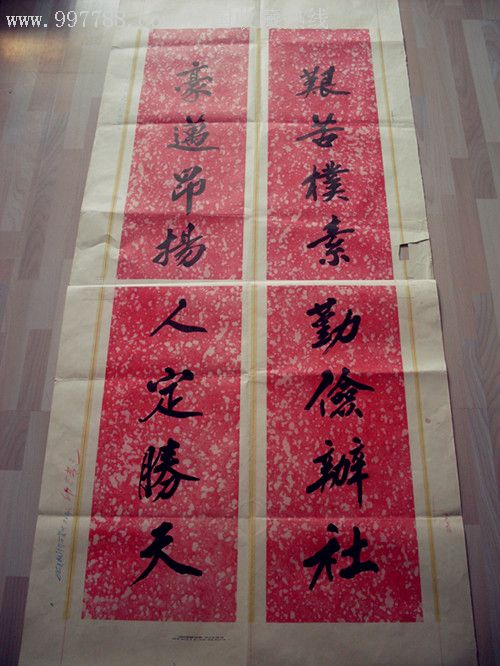 www.997788.
艱苦樸素勤儉辦社
豪邁昂揚人定勝天